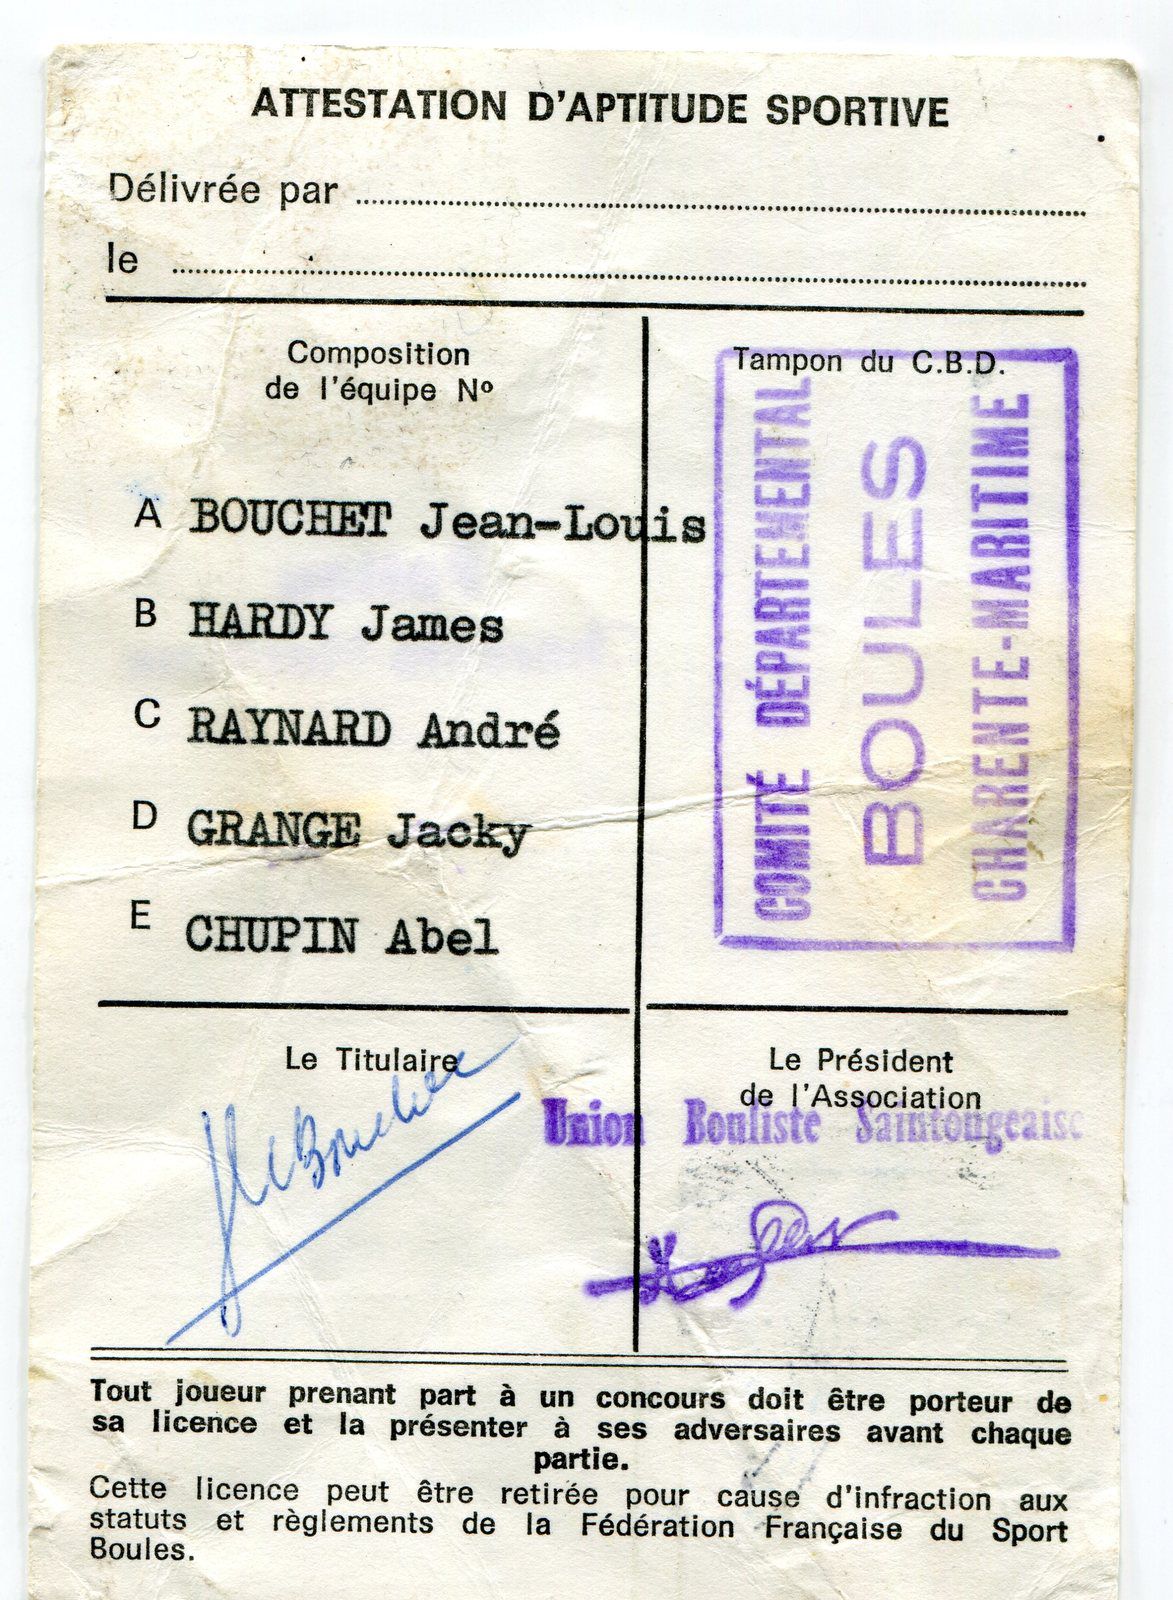 ATTESTATION D'APTITUDE SPORTIVE
Délivrée par
le
Composition
de l'équipe Nº
A BOUCHET Jean-Louis
B HARDY James
C RAYNARD André
D GRANGE Jacky
E CHUPIN Abel
Tampon du C.B.D.
COMITÉ DÉPARTEMENTAL
BOULES
CHARENTE-MARITIME
Le Titulaire
Le Président
de l'Association
Union Bouliste Saintongeaise
Tout joueur prenant part à un concours doit être porteur de
sa licence et la présenter à ses adversaires avant chaque
partie.
Cette licence peut être retirée pour cause d'infraction aux
statuts et règlements de la Fédération Française du Sport
Boules.